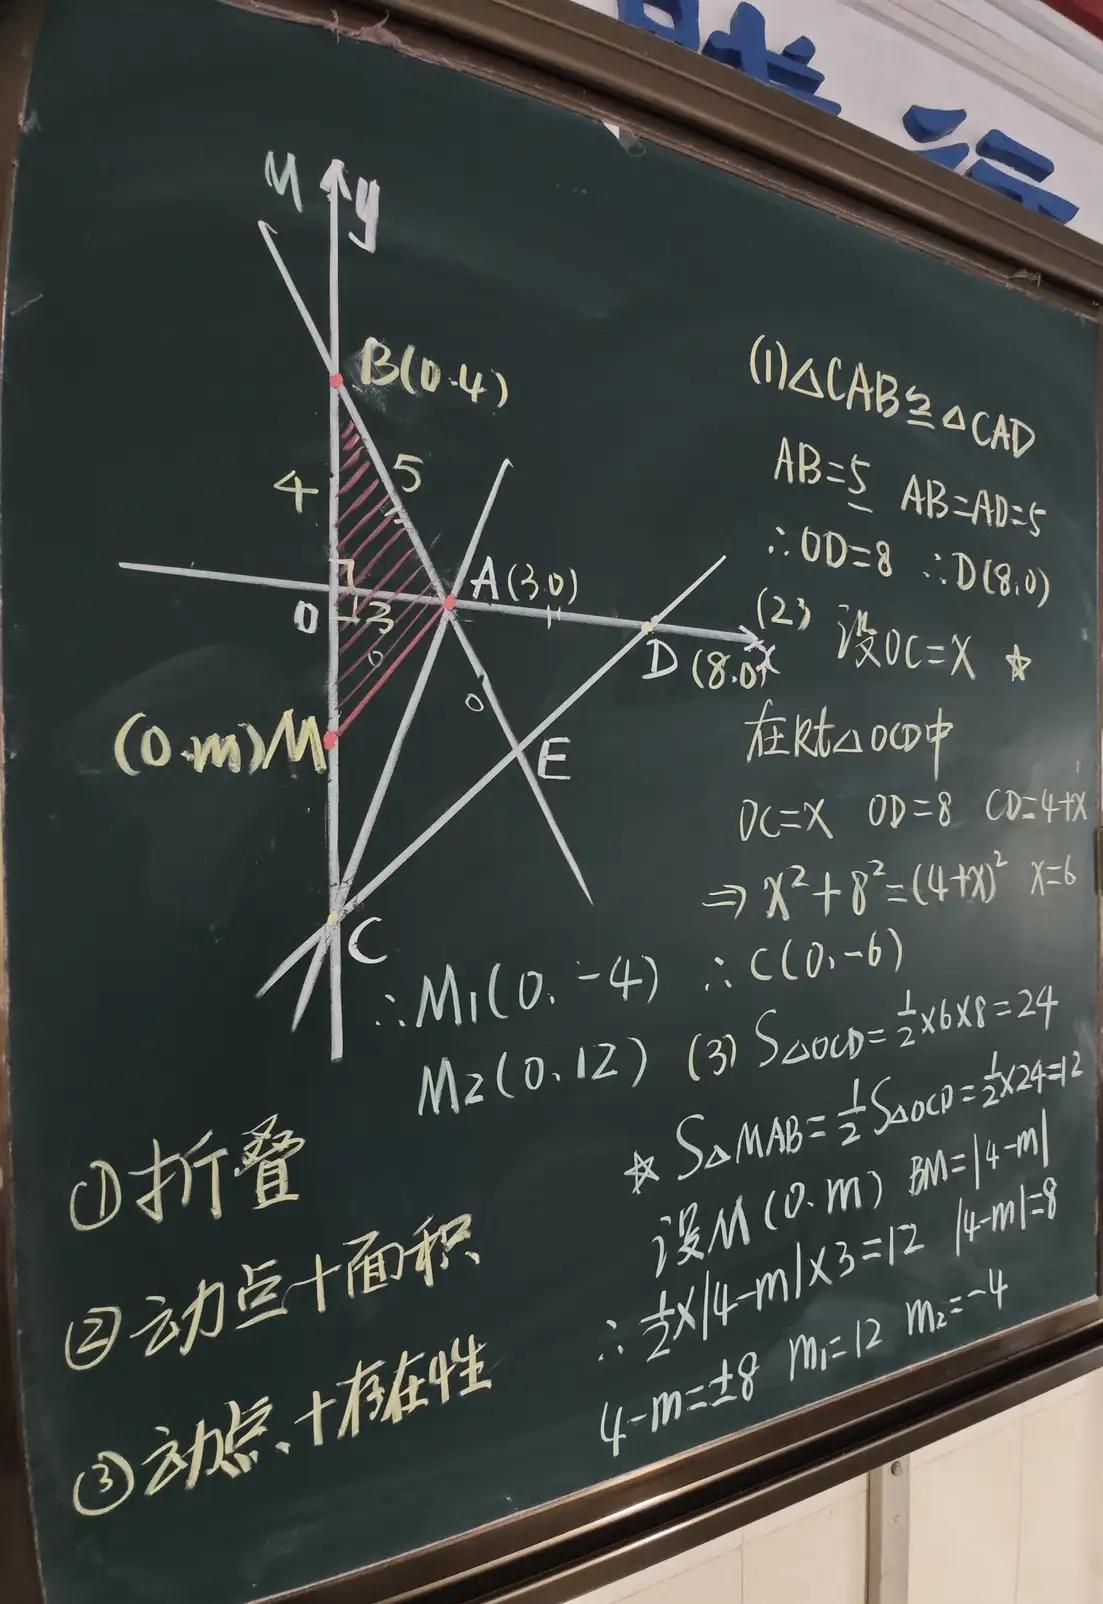 M
y
B(0.4)
4
5
0
3
0
A(3.0)
D(8.0)
x
0
(0.m)M
E
C
(1)△CAB≌△CAD
AB=5 AB=AD=5
∴OD=8 ∴D(8.0)
(2) 设OC=X ☆
在Rt△OCD中
OC=X OD=8 CD=4+x
⇒ X²+8²=(4+X)² X=6
∴C(0.-6)
(3) S△OCD=½×6×8=24
☆ S△MAB=½S△OCD=½×24=12
设M(0.m) BM=|4-m|
∴½×|4-m|×3=12 |4-m|=8
4-m=±8 m₁=12 m₂=-4
∴M₁(0.-4)
M₂(0.12)
①折叠
②动点+面积
③动点、+存在性